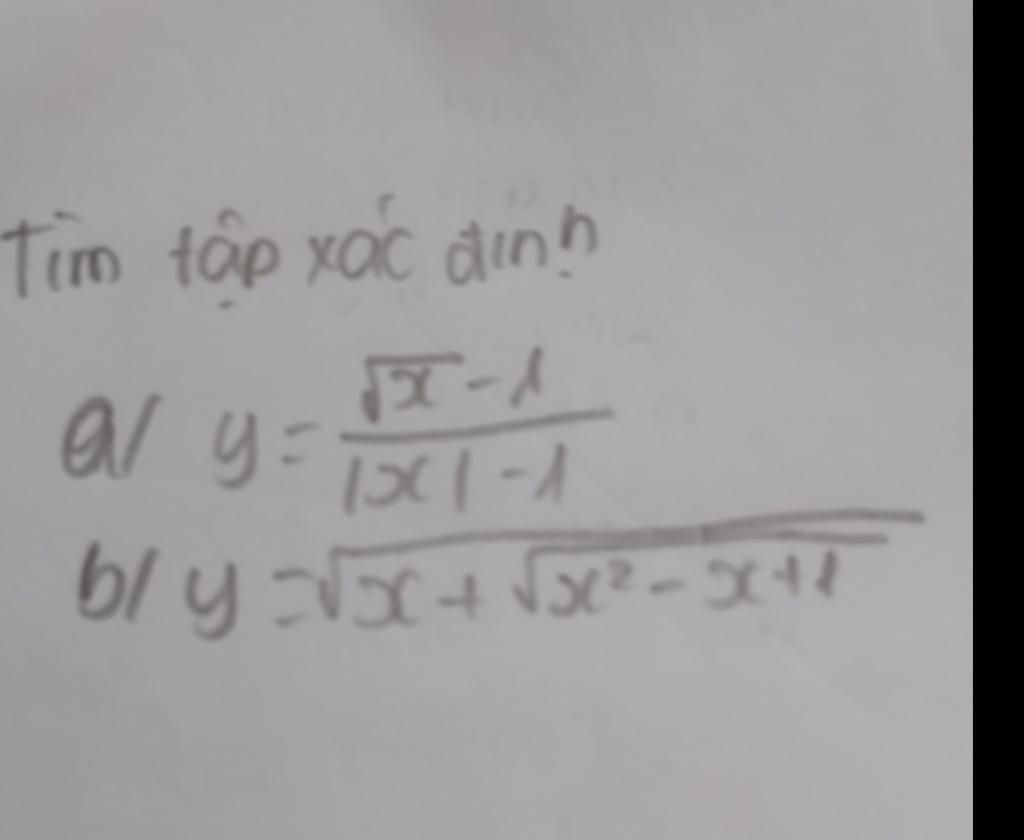 Tìm tập xác định
a/ y = \frac{\sqrt{x} - 1}{|x| - 1}
b/ y = \sqrt{x + \sqrt{x^2 - x + 1}}